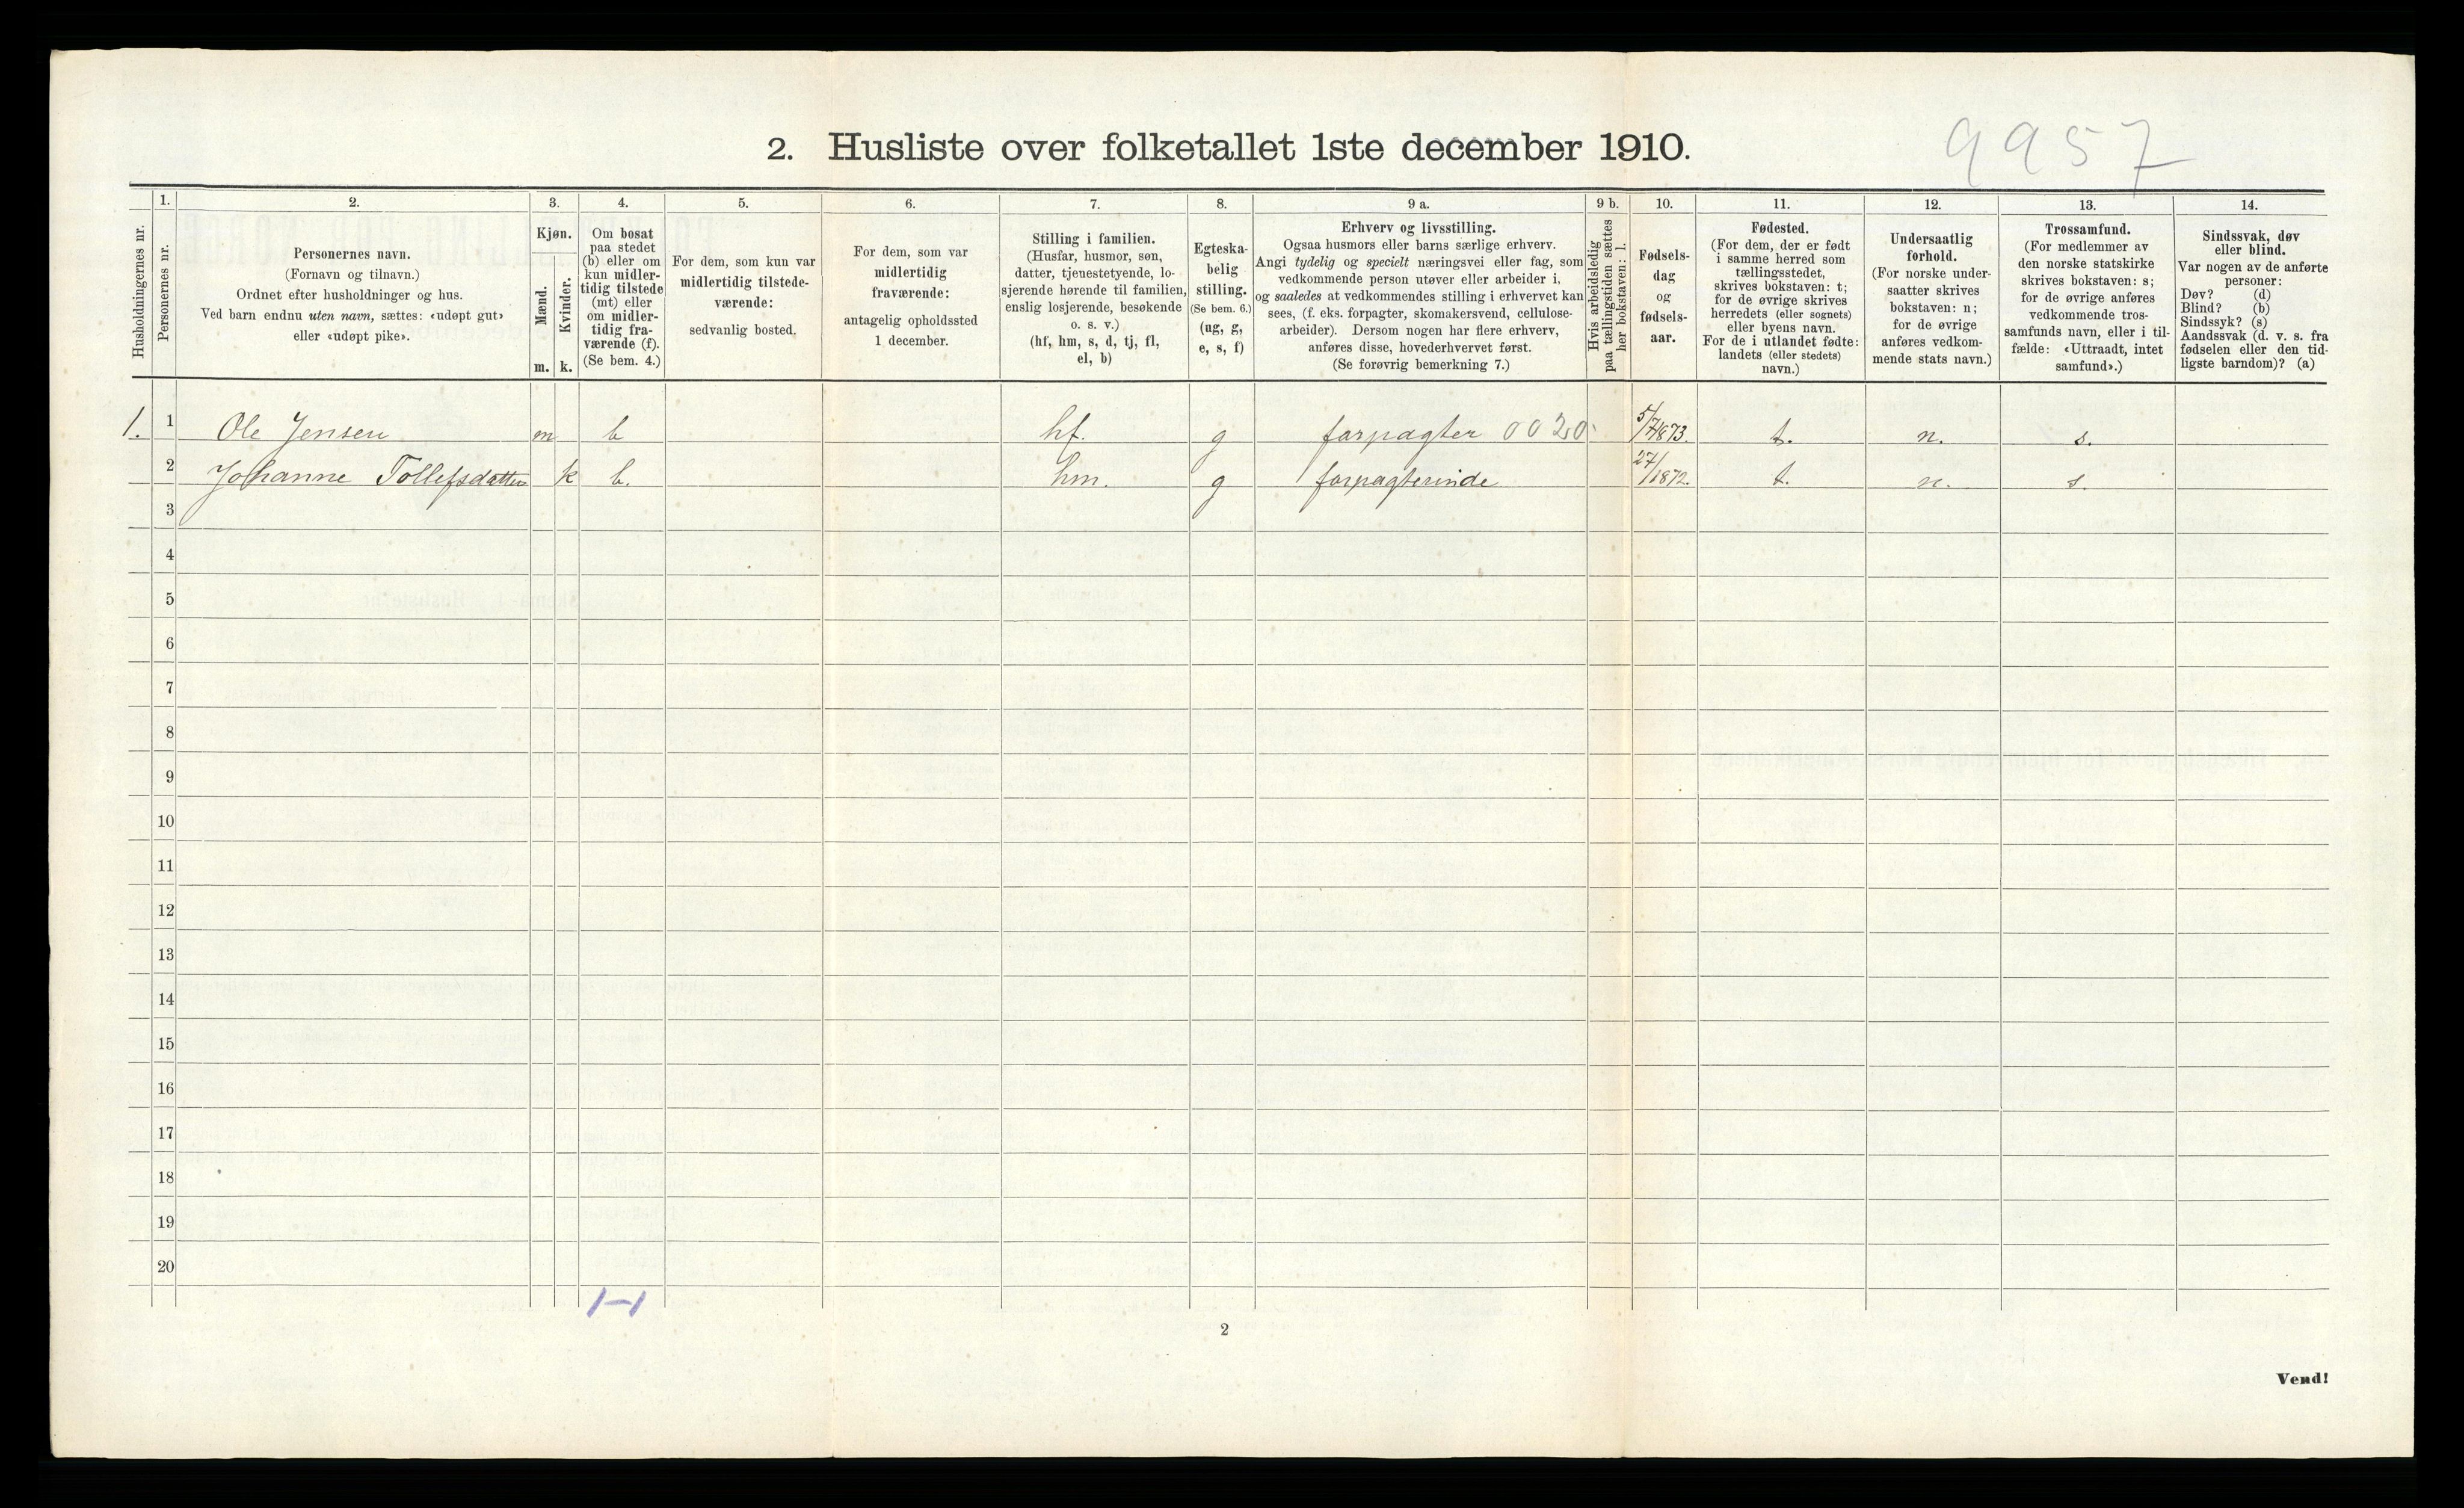 2. Husliste over folketallet 1ste december 1910.
9957
Husholdningernes nr.
1.
Personernes nr.
2.
Personernes navn.
(Fornavn og tilnavn.)
Ordnet efter husholdninger og hus.
Ved barn endnu uten navn, sættes: «udøpt gut»
eller «udøpt pike».
3.
Kjøn.
Mænd.
Kvinder.
m. k.
4.
Om bosat
paa stedet
(b) eller om
kun midler-
tidig tilstede
(mt) eller
om midler-
tidig fra-
værende (f).
(Se bem. 4.)
5.
For dem, som kun var
midlertidig tilstede-
værende:
sedvanlig bosted.
6.
For dem, som var
midlertidig
fraværende:
antagelig opholdssted
1 december.
7.
Stilling i familien.
(Husfar, husmor, søn,
datter, tjenestetyende, lo-
sjerende hørende til familien,
enslig losjerende, besøkende
o. s. v.)
(hf, hm, s, d, tj, fl,
el, b)
8.
Egteska-
belig
stilling.
(Se bem. 6.)
(ug, g,
e, s, f)
9 a.
Erhverv og livsstilling.
Ogsaa husmors eller barns særlige erhverv.
Angi tydelig og specielt næringsvei eller fag, som
vedkommende person utøver eller arbeider i,
og saaledes at vedkommendes stilling i erhvervet kan
sees, (f. eks. forpagter, skomakersvend, cellulose-
arbeider). Dersom nogen har flere erhverv,
anføres disse, hovederhvervet først.
(Se forøvrig bemerkning 7.)
9 b.
Hvis arbeidsledig
paa tællingstiden sættes
her bokstaven: l.
10.
Fødsels-
dag
og
fødsels-
aar.
11.
Fødested.
(For dem, der er født
i samme herred som
tællingsstedet,
skrives bokstaven: t;
for de øvrige skrives
herredets (eller sognets)
eller byens navn.
For de i utlandet fødte:
landets (eller stedets)
navn.)
12.
Undersaatlig
forhold.
(For norske under-
saatter skrives
bokstaven: n;
for de øvrige
anføres vedkom-
mende stats navn.)
13.
Trossamfund.
(For medlemmer av
den norske statskirke
skrives bokstaven: s;
for de øvrige anføres
vedkommende tros-
samfunds navn, eller i til-
fælde: «Uttraadt, intet
samfund».)
14.
Sindssvak, døv
eller blind.
Var nogen av de anførte
personer:
Døv? (d)
Blind? (b)
Sindssyk? (s)
Aandssvak (d. v. s. fra
fødselen eller den tid-
ligste barndom)? (a)
1. 1 Ole Jensen m b hf. g forpagter 0020 5/7 1873. t. n. s.
2 Johanne Tollefsdatter k b. hm. g forpagterinde 1872. t. n. s.
3
4
5
6
7
8
9
10
11
12
13
14
15
16
17
18
19
20
1–1
2
Vend!